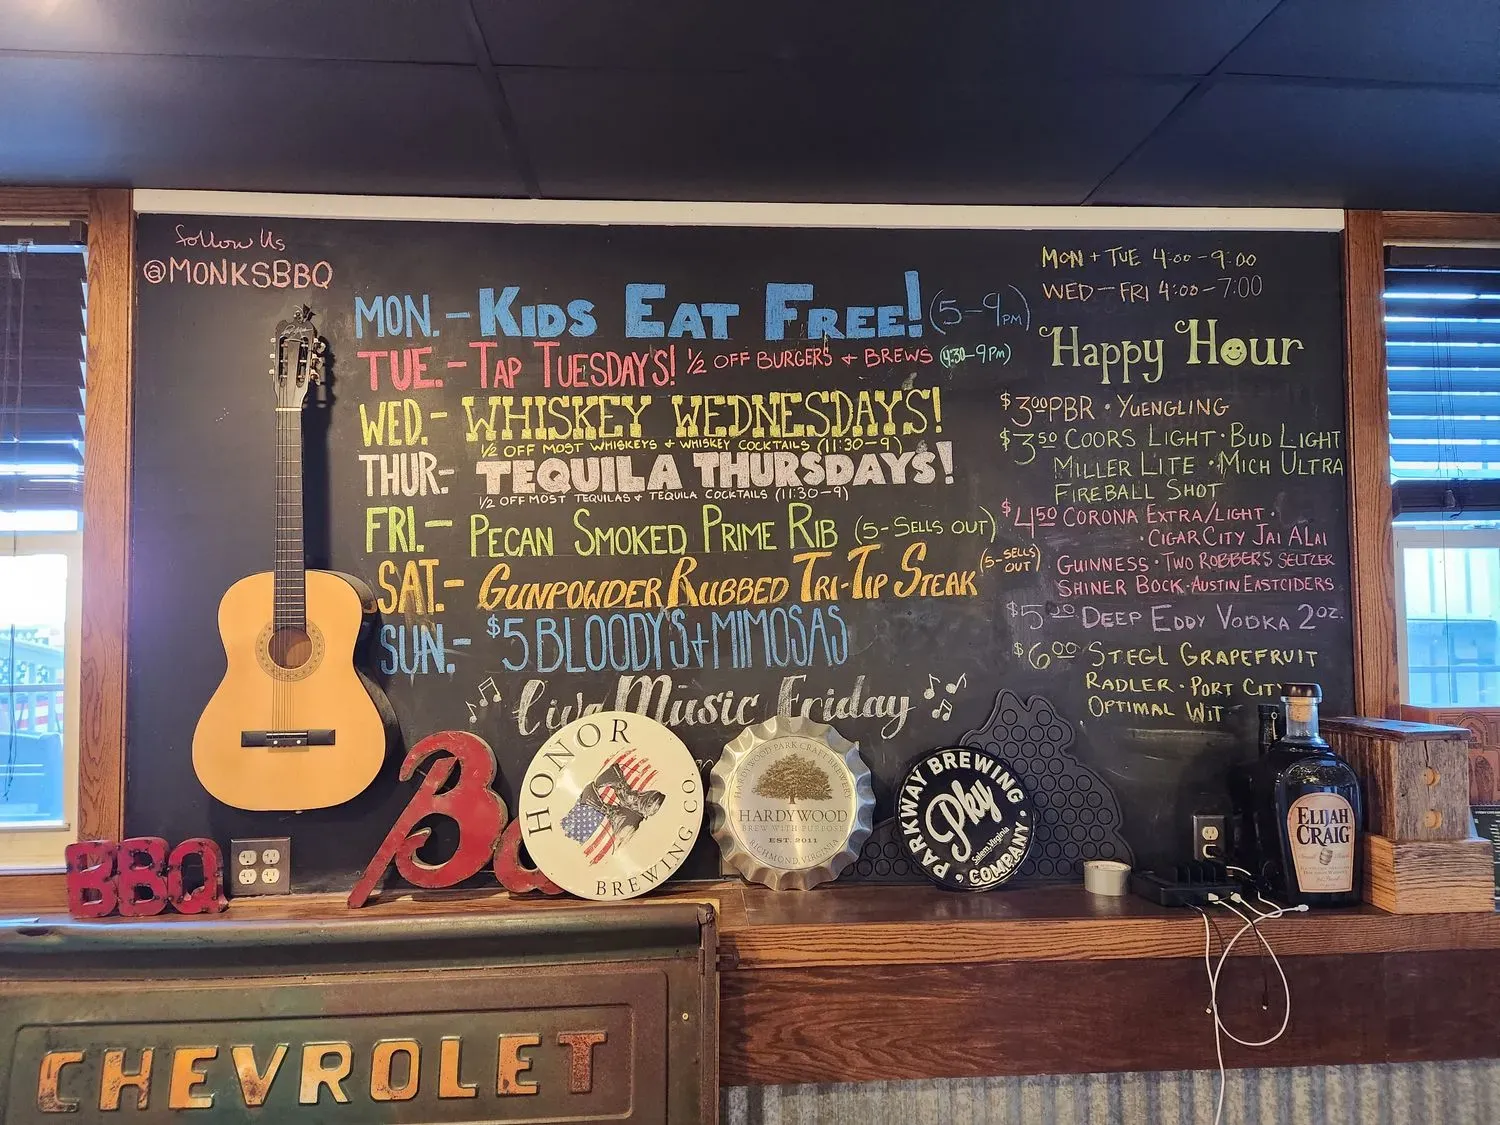 follow Us
@MONKSBBQ
MON. - KIDS EAT FREE! (5-9PM)
TUE. - TAP TUESDAYS! 1/2 OFF BURGERS + BREWS (4:30-9PM)
WED. - WHISKEY WEDNESDAYS!
1/2 OFF MOST WHISKEYS + WHISKEY COCKTAILS (11:30-9)
THUR- TEQUILA THURSDAYS!
1/2 OFF MOST TEQUILAS + TEQUILA COCKTAILS (11:30-9)
FRI. - PECAN SMOKED PRIME RIB (5-SELLS OUT)
SAT. - GUNPOWDER RUBBED TRI-TIP STEAK (5-SELLS OUT)
SUN. - $5 BLOODY'S + MIMOSAS
Live Music Friday
MON + TUE 4:00-9:00
WED-FRI 4:00-7:00
Happy Hour
$3.00 PBR · YUENGLING
$3.50 COORS LIGHT · BUD LIGHT
MILLER LITE · MICH ULTRA
FIREBALL SHOT
$4.50 CORONA EXTRA/LIGHT ·
· CIGAR CITY JAI ALAI
GUINNESS · TWO ROBBERS SELTZER
SHINER BOCK · AUSTIN EASTCIDERS
DEEP EDDY VODKA 2OZ.
$6.00 STEGL GRAPEFRUIT
RADLER · PORT CITY
OPTIMAL WIT
BBQ
HONOR
BREWING CO.
HARDYWOOD PARK CRAFT BREWERY
HARDYWOOD
BREW WITH PURPOSE
EST. 2011
RICHMOND, VIRGINIA
PARKWAY BREWING
Pky
Salem, Virginia
COMPANY
ELIJAH
CRAIG
CHEVROLET